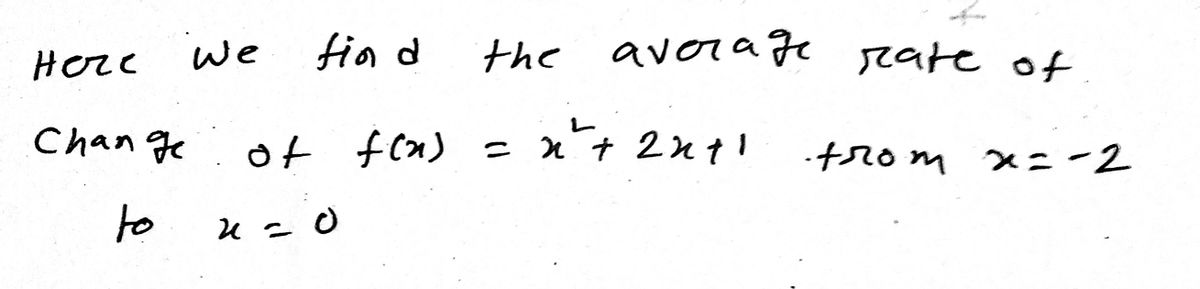 Here we find the average rate of
Change of f(x) = x² + 2x + 1 from x = -2
to x = 0